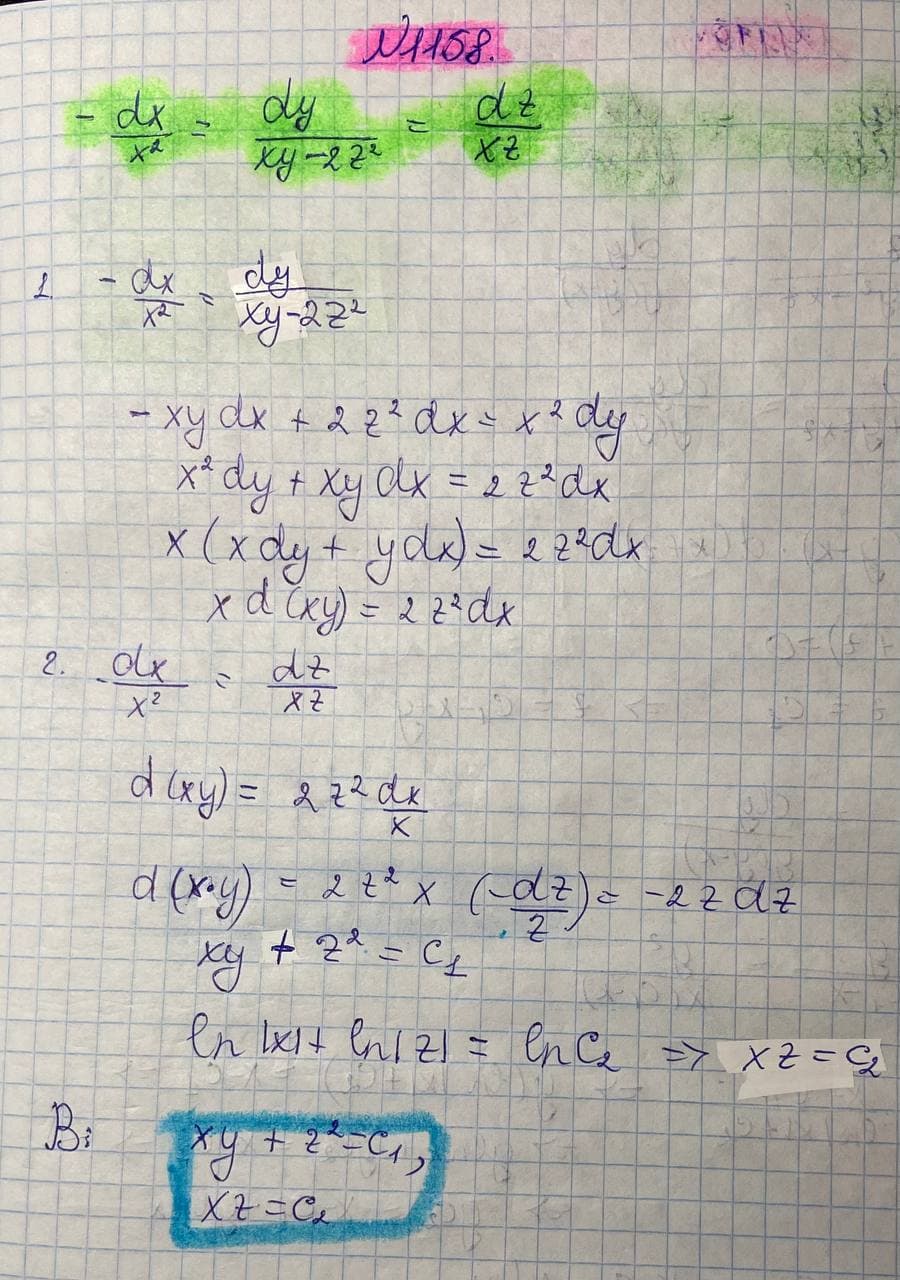 №1168.
- dx/x² = dy/(xy-2z²) = dz/xz
1. - dx/x² = dy/(xy-2z²)
- xy dx + 2z² dx = x² dy
x² dy + xy dx = 2z² dx
x (x dy + y dx) = 2z² dx
x d (xy) = 2z² dx
2. - dx/x² = dz/xz
d (xy) = 2z² dx/x
d (x·y) = 2z² x (-dz/z) = -2z dz
xy + z² = C₁
ln |x| + ln |z| = ln C₂ => xz = C₂
В: xy + z² = C₁,
xz = C₂